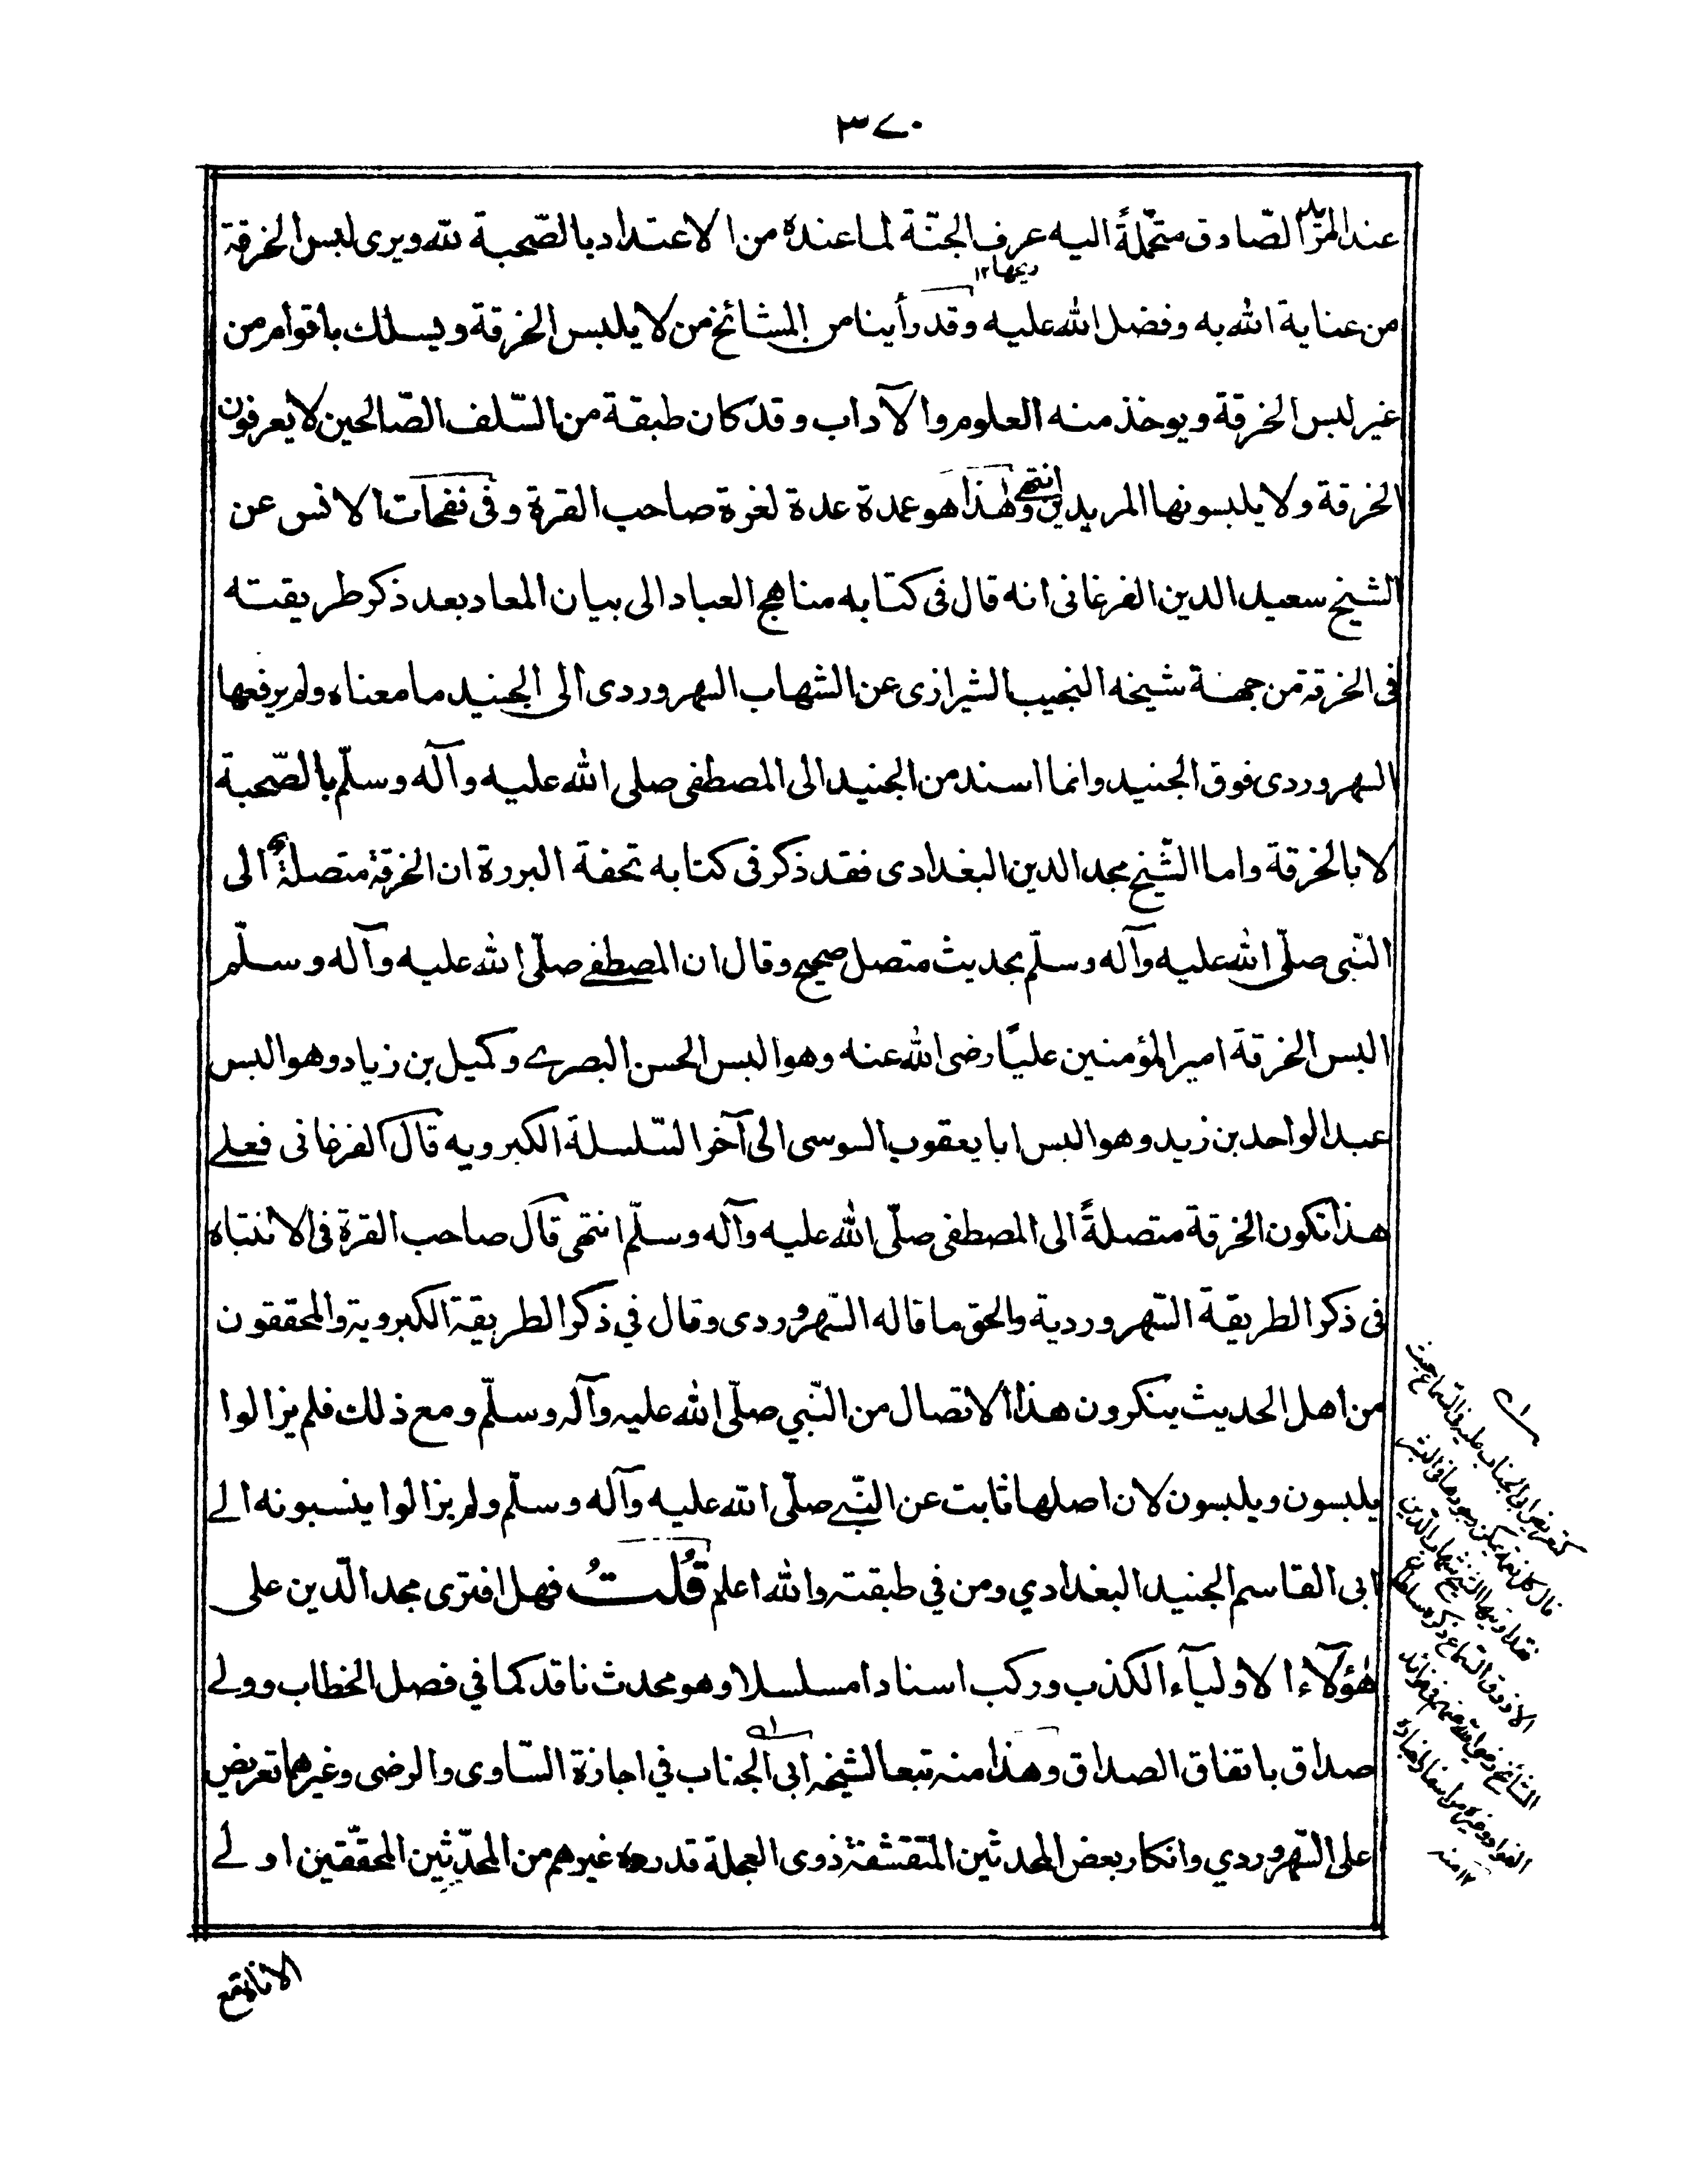 ٣٧٠
عند المريد الصّادق متحمّلةً اليه عرف الجنّة لما عنده من الاعتداد بالصّحبة لله ويرى لبس الخرقة
ريحها ١٢
من عناية الله به وفضل الله عليه وقد رأينا من المشائخ من لا يلبس الخرقة ويسلك باقوام من
غير لبس الخرقة ويوخذ منه العلوم والآداب وقد كان طبقة من السّلف الصّالحين لا يعرفون
الخرقة ولا يلبسونها المريدين انتهى وهٰذا هو عمدة عدة لغرة صاحب القرة وفى نفحات الانس عن
الشيخ سعيد الدين الفرغانى انه قال فى كتابه مناهج العباد الى بيان المعاد بعد ذكر طريقته
فى الخرقة من جهة شيخه النجيب الشيرازى عن الشهاب السهروردى الى الجنيد ما معناه ولم يرفعها
السهروردى فوق الجنيد وانما اسند من الجنيد الى المصطفى صلى الله عليه وآله وسلّم بالصّحبة
لا بالخرقة واما الشّيخ مجد الدين البغدادى فقد ذكر فى كتابه تحفة البررة ان الخرقة متصلة الى
النّبى صلّى الله عليه وآله وسلّم بحديث متصل صحيح وقال ان المصطفے صلّى الله عليه وآله وسلّم
البس الخرقة امير المؤمنين عليًّا رضى الله عنه وهو البس الحسن البصرے وكميل بن زياد وهو البس
عبد الواحد بن زيد وهو البس ابا يعقوب السوسى الى آخر السّلسلة الكبرويه قال الفرغانى فعلے
هذا تكون الخرقة متصلةً الى المصطفى صلّى الله عليه وآله وسلّم انتهى قال صاحب القرة فى الانتباه
فى ذكر الطريقة السّهروردية والحق ما قاله السّهروردى وقال في ذكر الطريقة الكبروية والمحققون
من اهل الحديث ينكرون هذا الاتصال من النّبي صلّى الله عليه وآله وسلّم ومع ذلك فلم يزالوا
يلبسون ويلبسون لان اصلها ثابت عن النّبے صلّى الله عليه وآله وسلّم ولم يزالوا ينسبونه الے
ابى القاسم الجنيد البغدادي ومن في طبقته والله اعلم قُلتُ فهل افترى مجد الدّين على
هٰؤلآء الاوليآء الكذب وركب اسنادا مسلسلا وهو محدث ناقد كما في فصل الخطاب وولے
صداق باتفاق الصداق وهذا منه تبعا لشيخه ابى الجناب في اجازة السّاوى والرضى وغيرهما تعريض
على السّهروردي وانكار بعض المحدثين المتقشفة ذوى العجلة قد رده غيرهم من المحدّثين المحقّقين اولے
قال كل نعمة يمكن وجودها فى البشر
الفوائد وغيره من اسفار اخباره
١٢ منه